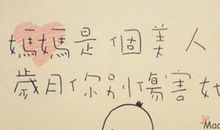 媽媽是個美人
歲月你別傷害她
Mac